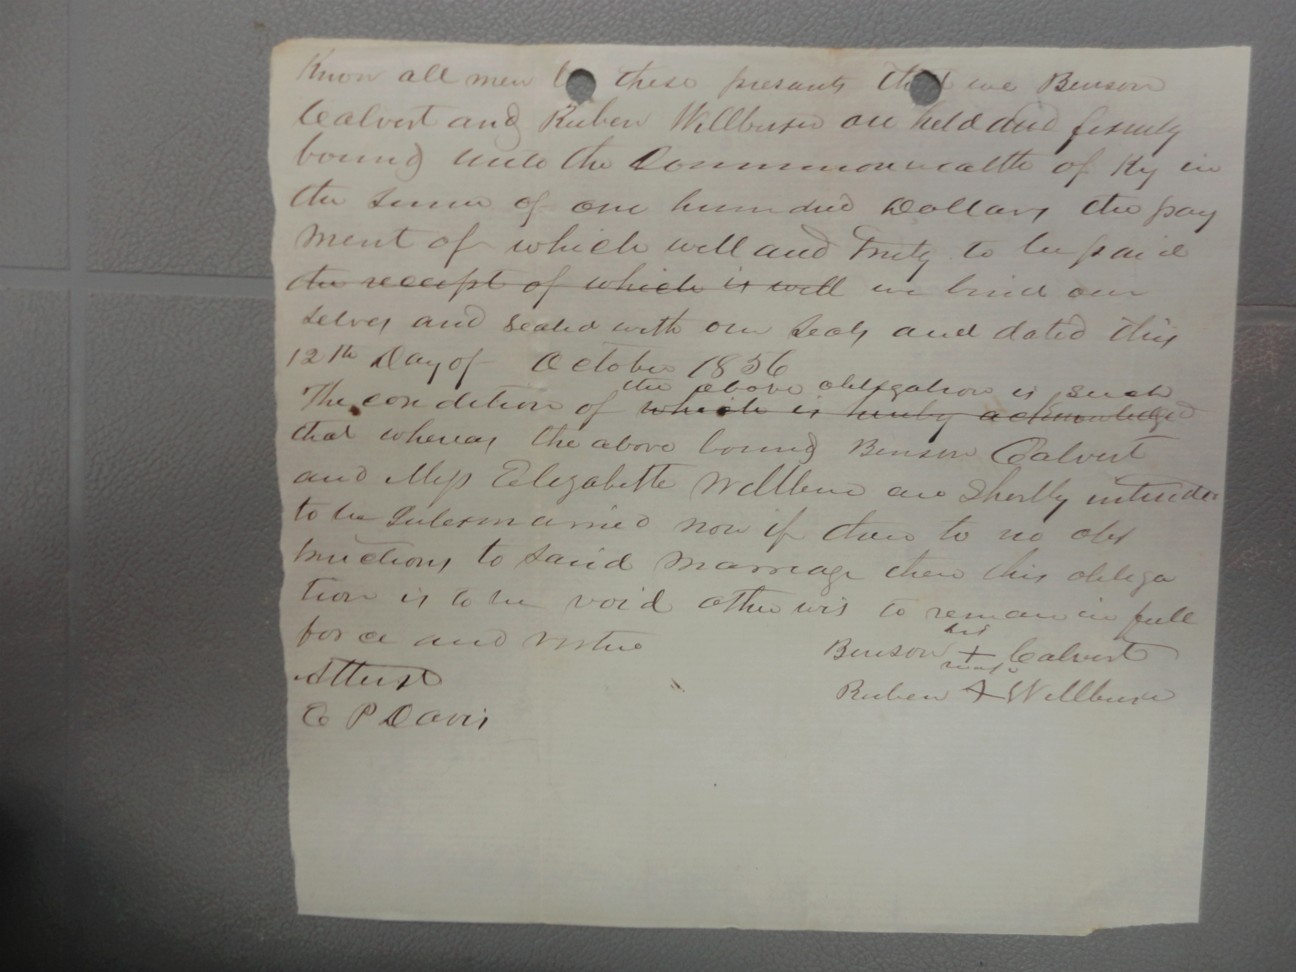 Know all men b these presants th we Benson
Calvert and Ruben Willburn are held and firmly
bound unto the Commmonwealth of Ky in
the sum of one hundred Dollars the pay
ment of which well and truly to be paid
the receipt of which is well we bind our
selves and sealed with our seals and dated this
12th Day of October 1856
the above obligation is such
The condition of which is hereby acknowledged
that whereas the above bound Benson Calvert
and Miss Elizabeth Willburn are Shortly intended
to be Intermarried now if there to no obs
tructions to said marriage then this obliga
tion is to be void otherwis to remain in full
force and virtue
his
Benson + Calvert
mark
Ruben + Willburn
Attest
C P Davis